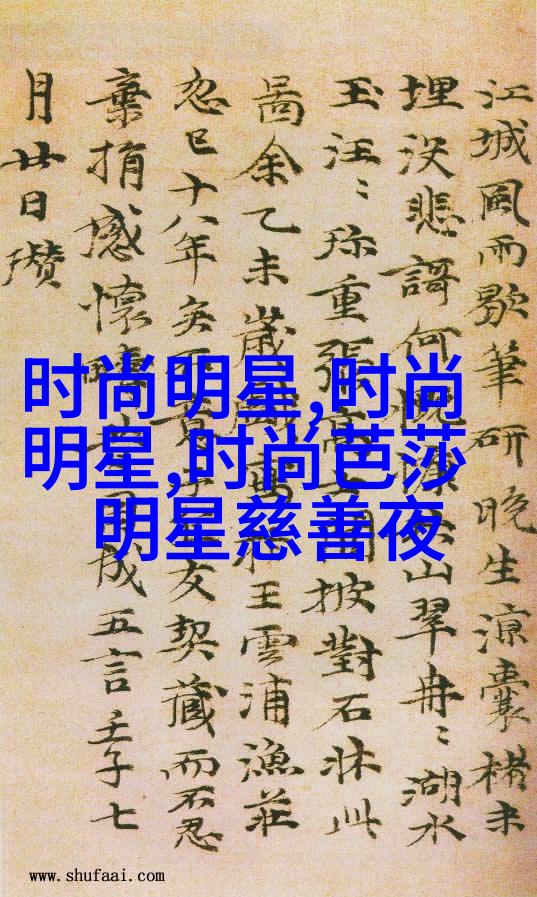 江城風雨歇筆研晚生涼囊楮未
埋沒悲謌何慨山翠冉〻湖水
玉汪〻珎重張高披對石牀此
畵余乙未歲王雲浦漁莊
忽已十八年矣不友契藏而不忍
棄捐感懷成五言壬子七
月廿日瓚
时尚明星,时尚
明星,时尚芭莎
明星慈善夜
www.shufaai.com